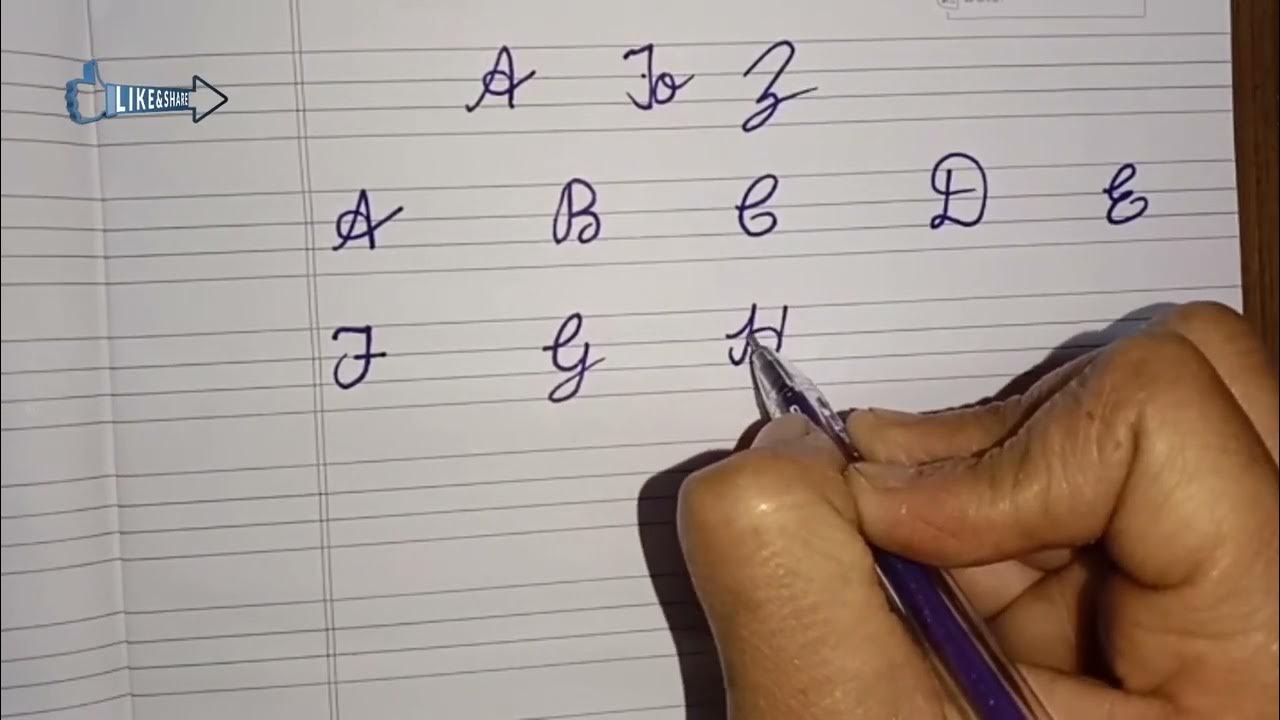 LIKE&SHARE
A To Z
A B C D E
F G H